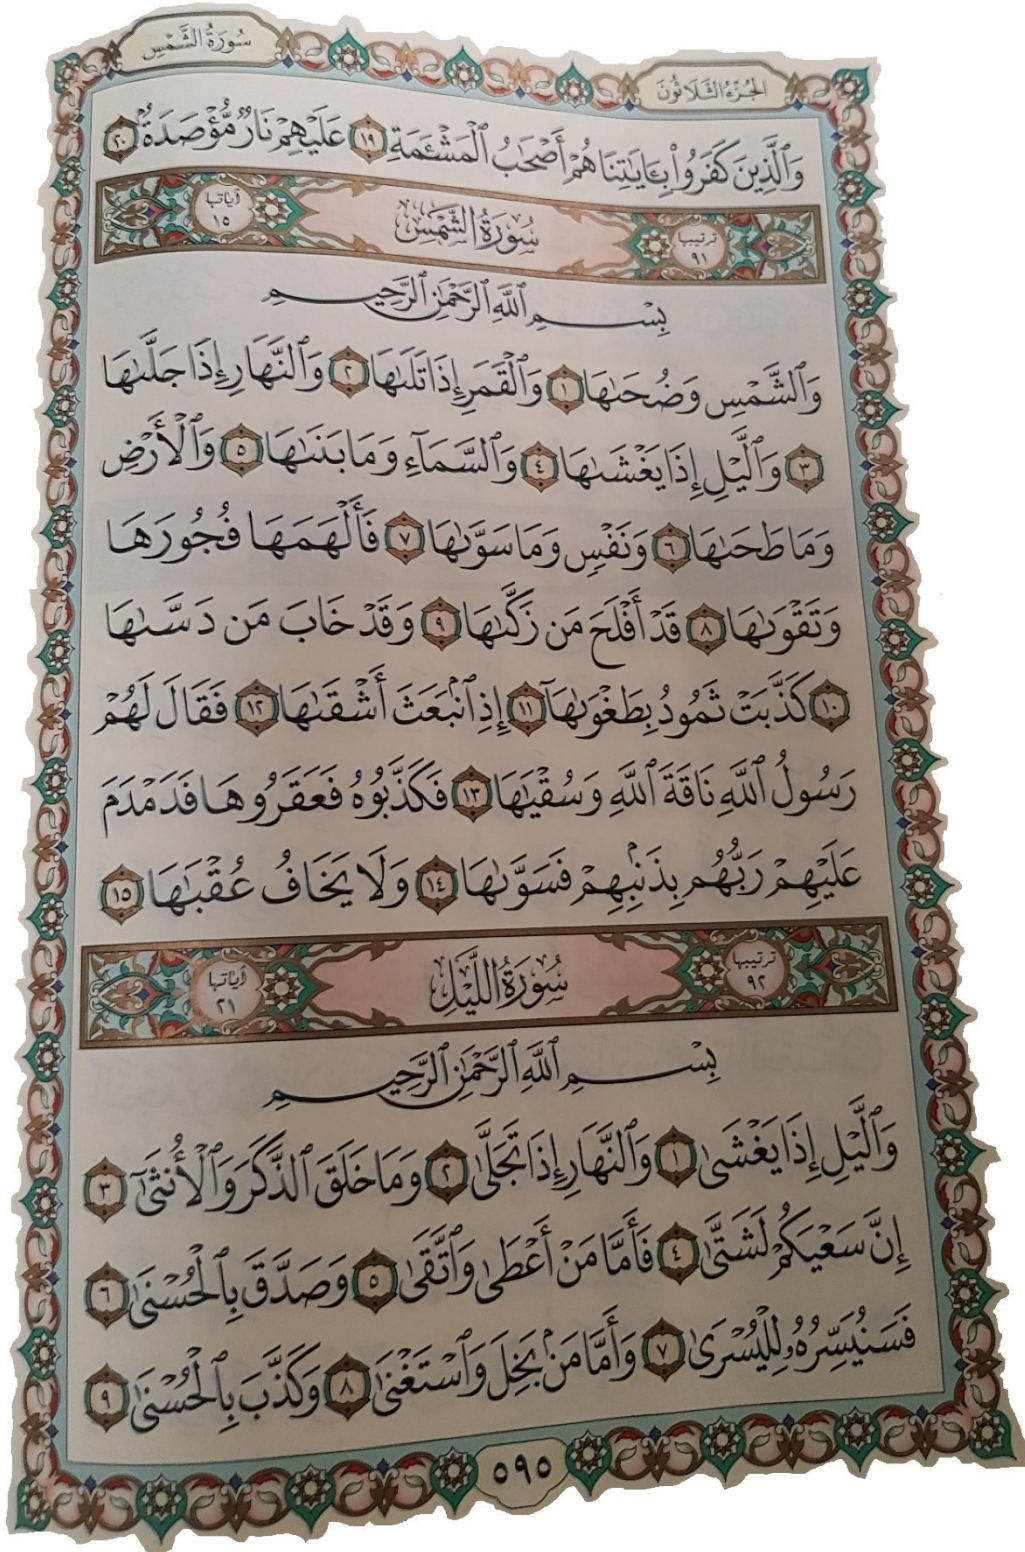 سُورَةُ الشَّمْسِ
الجُزْءُ الثَّلَاثُونَ
وَٱلَّذِينَ كَفَرُواْ بِـَٔايَٰتِنَا هُمْ أَصْحَٰبُ ٱلْمَشْـَٔمَةِ ١٩ عَلَيْهِمْ نَارٌ مُّؤْصَدَةٌۢ ٢٠
ترتيبها ٩١ سُورَةُ الشَّمْسِ آياتها ١٥
بِسْمِ ٱللَّهِ ٱلرَّحْمَٰنِ ٱلرَّحِيمِ
وَٱلشَّمْسِ وَضُحَىٰهَا ١ وَٱلْقَمَرِ إِذَا تَلَىٰهَا ٢ وَٱلنَّهَارِ إِذَا جَلَّىٰهَا
٣ وَٱلَّيْلِ إِذَا يَغْشَىٰهَا ٤ وَٱلسَّمَآءِ وَمَا بَنَىٰهَا ٥ وَٱلْأَرْضِ
وَمَا طَحَىٰهَا ٦ وَنَفْسٍ وَمَا سَوَّىٰهَا ٧ فَأَلْهَمَهَا فُجُورَهَا
وَتَقْوَىٰهَا ٨ قَدْ أَفْلَحَ مَن زَكَّىٰهَا ٩ وَقَدْ خَابَ مَن دَسَّىٰهَا
١٠ كَذَّبَتْ ثَمُودُ بِطَغْوَىٰهَآ ١١ إِذِ ٱنۢبَعَثَ أَشْقَىٰهَا ١٢ فَقَالَ لَهُمْ
رَسُولُ ٱللَّهِ نَاقَةَ ٱللَّهِ وَسُقْيَٰهَا ١٣ فَكَذَّبُوهُ فَعَقَرُوهَا فَدَمْدَمَ
عَلَيْهِمْ رَبُّهُم بِذَنۢبِهِمْ فَسَوَّىٰهَا ١٤ وَلَا يَخَافُ عُقْبَٰهَا ١٥
ترتيبها ٩٢ سُورَةُ اللَّيْلِ آياتها ٢١
بِسْمِ ٱللَّهِ ٱلرَّحْمَٰنِ ٱلرَّحِيمِ
وَٱلَّيْلِ إِذَا يَغْشَىٰ ١ وَٱلنَّهَارِ إِذَا تَجَلَّىٰ ٢ وَمَا خَلَقَ ٱلذَّكَرَ وَٱلْأُنثَىٰٓ ٣
إِنَّ سَعْيَكُمْ لَشَتَّىٰ ٤ فَأَمَّا مَنْ أَعْطَىٰ وَٱتَّقَىٰ ٥ وَصَدَّقَ بِٱلْحُسْنَىٰ ٦
فَسَنُيَسِّرُهُۥ لِلْيُسْرَىٰ ٧ وَأَمَّا مَنۢ بَخِلَ وَٱسْتَغْنَىٰ ٨ وَكَذَّبَ بِٱلْحُسْنَىٰ ٩
٥٩٥